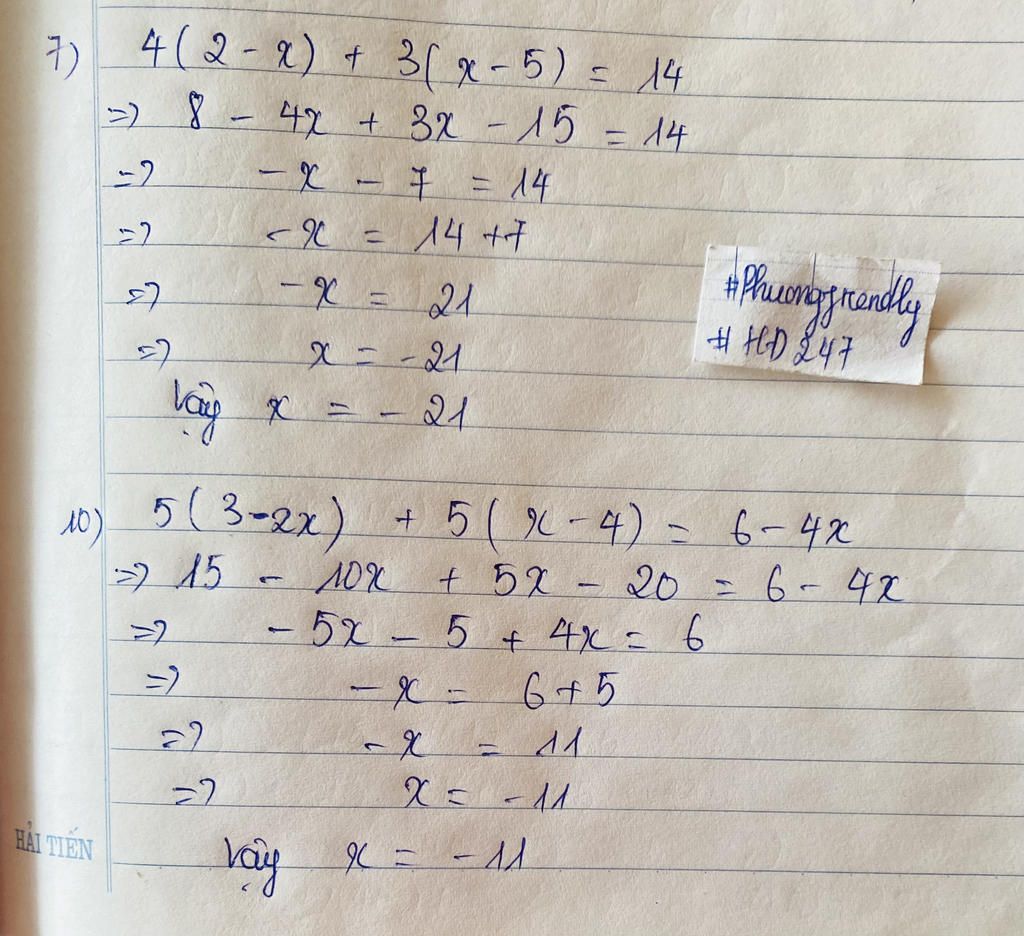 7) 4(2 - x) + 3(x - 5) = 14
=> 8 - 4x + 3x - 15 = 14
=> - x - 7 = 14
=> - x = 14 + 7
=> - x = 21
=> x = - 21
Vậy x = - 21
#Phuongfrendly
# HD 247
10) 5(3 - 2x) + 5(x - 4) = 6 - 4x
=> 15 - 10x + 5x - 20 = 6 - 4x
=> - 5x - 5 + 4x = 6
=> - x = 6 + 5
=> - x = 11
=> x = - 11
Vậy x = - 11
HẢI TIẾN